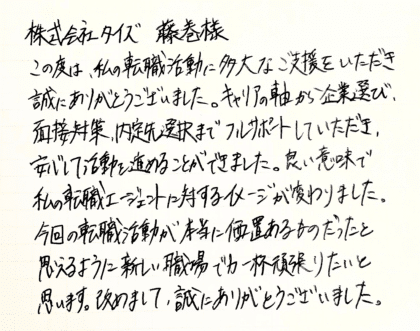 株式会社タイズ 藤巻様
この度は、私の転職活動に多大なご支援をいただき
誠にありがとうございました。キャリアの軸から企業選び、
面接対策、内定先選択までフルサポートしていただき、
安心して活動を進めることができました。良い意味で
私の転職エージェントに対するイメージが変わりました。
今回の転職活動が本当に価置あるものだったと
思えるように新しい職場で力一杯頑張りたいと
思います。改めまして、誠にありがとうございました。